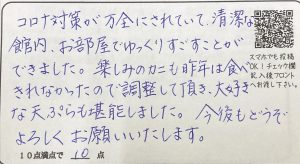 コロナ対策が万全にされていて、清潔な
館内、お部屋でゆっくりすごすことが
できました。楽しみのカニも昨年は食べ
きれなかったので調整して頂き、大好き
な天ぷらも堪能しました。今後もどうぞ
よろしくお願いいたします。
10点満点で 10 点
スマホでも投稿
OK!チェック欄
記入後フロント
へお渡し下さい。